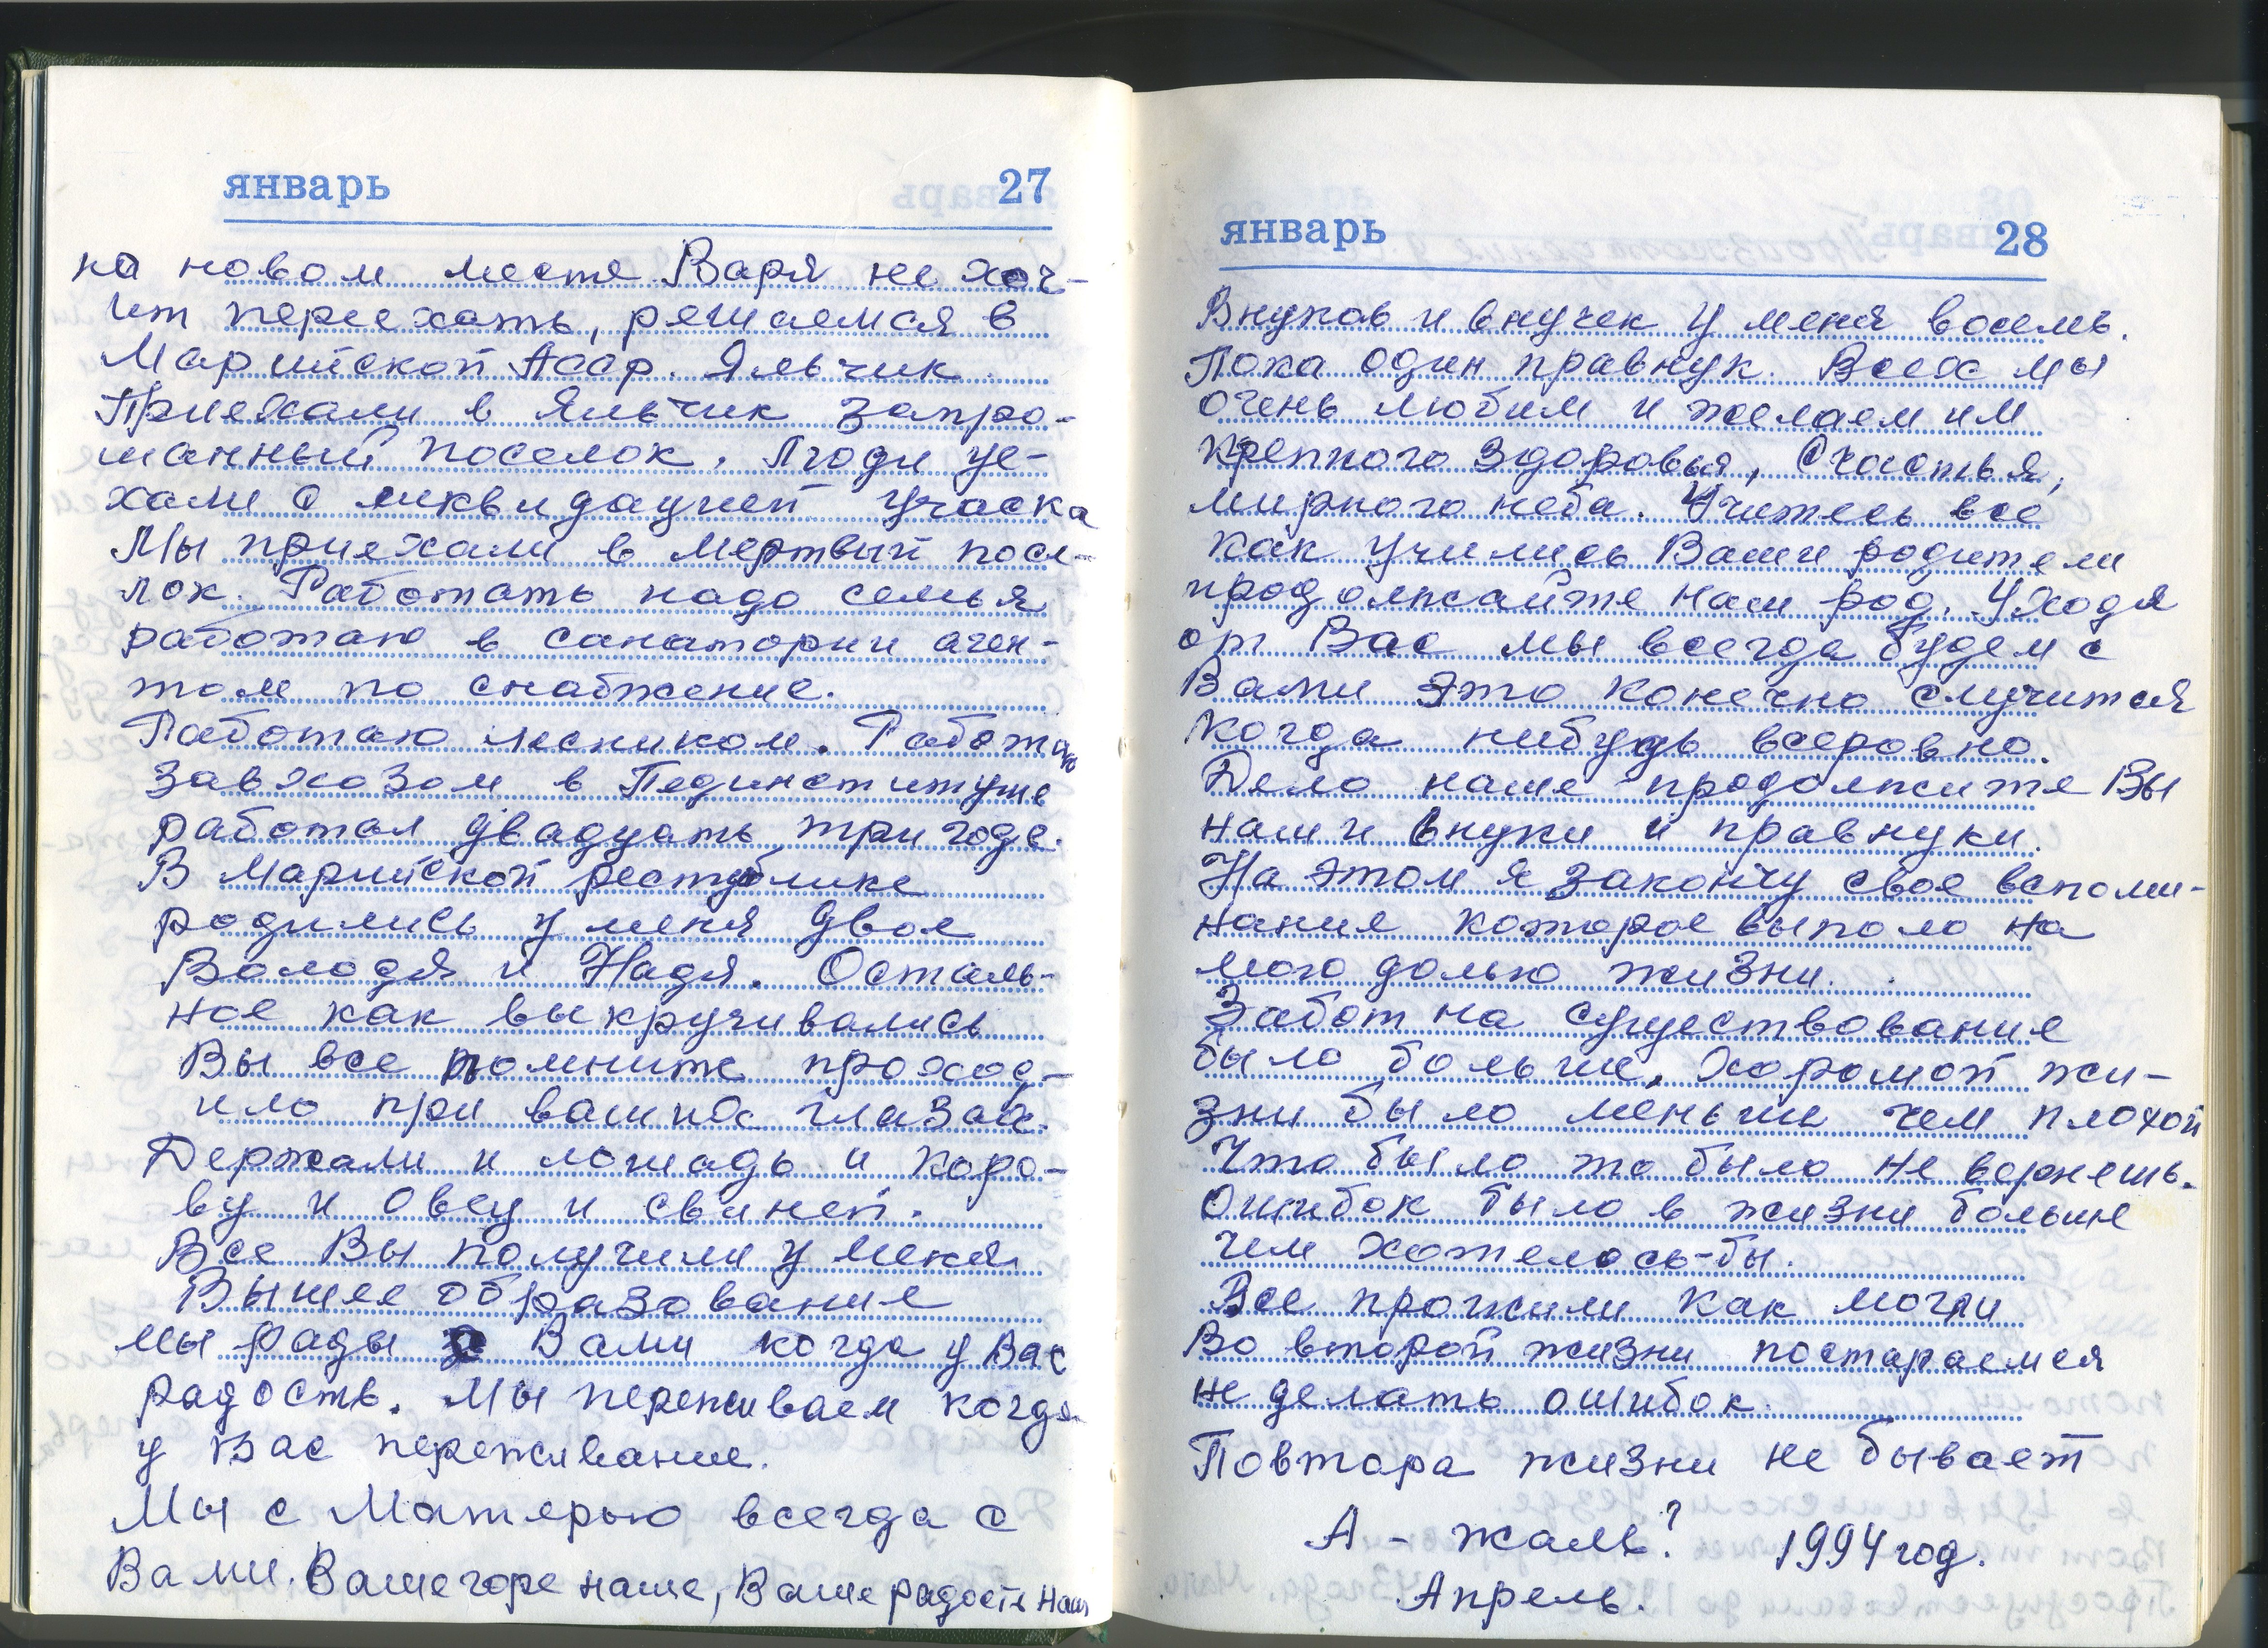 январь 27
на новом месте Варя не хоч-
ит переехать, решаемся в
Марийской Асср. Яльчик
Приехали в Яльчик запро-
шанный поселок. Люди уе-
хали с ликвидацией учаска
Мы приехали в мертвый посе-
лок. Работать надо семья
работаю в санатории аген-
том по снабжение.
Работаю лесником. Работаю
завхозом в Пединституте
работал двадцать три года.
В Марийской республике
родились у меня двое
Володя и Надя. Осталь-
ное как выкручивались
Вы все помните проход-
ило при ваших глазах.
Держали и лошадь и коро-
ву и овец и свиней.
Все Вы получили у меня
Вышее образование
мы рады за Вами когда у Вас
радость. Мы переживаем когда
у Вас переживание.
Мы с Матерью всегда с
Вами. Ваше горе наше, Ваше радость наш
январь 28
Внуков и внучек у меня восемь.
Пока один правнук. Всех мы
очень любим и желаем им
крепкого здоровья, счастья,
мирного неба. Учитесь все
как учились Ваши родители
продолжайте наш род. Уходя
от Вас мы всегда будем с
Вами это конечно случится
когда нибудь всеровно.
Дело наше продолжите Вы
наши внуки и правнуки.
На этом я закончу свое вспоми-
нание которое выпало на
мою долью жизни.
Забот на существование
было больше. Хорошой жи-
зни было меньше чем плохой
Что было то было не вернешь.
Ошибок было в жизни больше
чем хотелось-бы.
Все прожили как могли
Во второй жизни постараемся
не делать ошибок.
Повтора жизни не бывает
А - жаль? 1994 год.
Апрель.